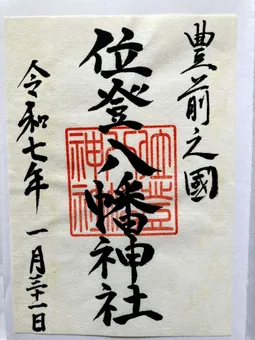 豊前之國
位登八幡神社
令和七年 一月三十一日
位登八幡神社